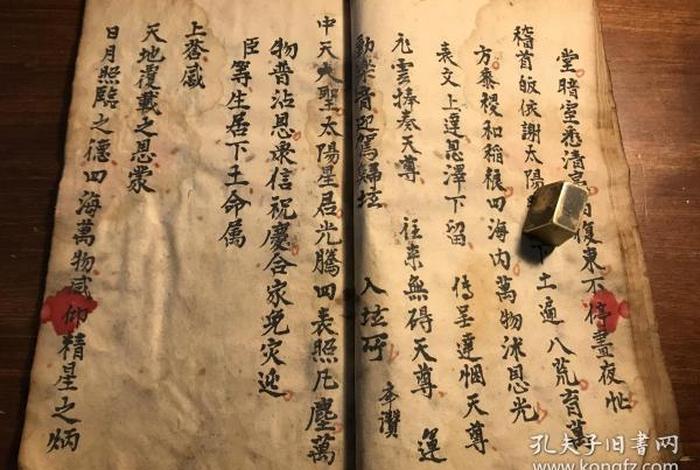 堂暗室悉清 復東不停晝夜
稽首皈依謝太陽 下土適八荒育萬
方黍稷和稻粮四海内萬物沐恩光
表文上達恩澤下留 傳呈達烟天尊
雲捧奏天尊 往来無碍天尊 運
本讚
動樂音迎駕歸垃 入垃
中天大聖太陽星居光騰四表照凡塵萬
物普沾恩衆信祝慶合家免灾迎
臣等生居下土命属
上答感
天地覆載之恩蒙
日月照臨之德四海萬物咸仰精星之炳
孔夫子旧書网
kongfz.com